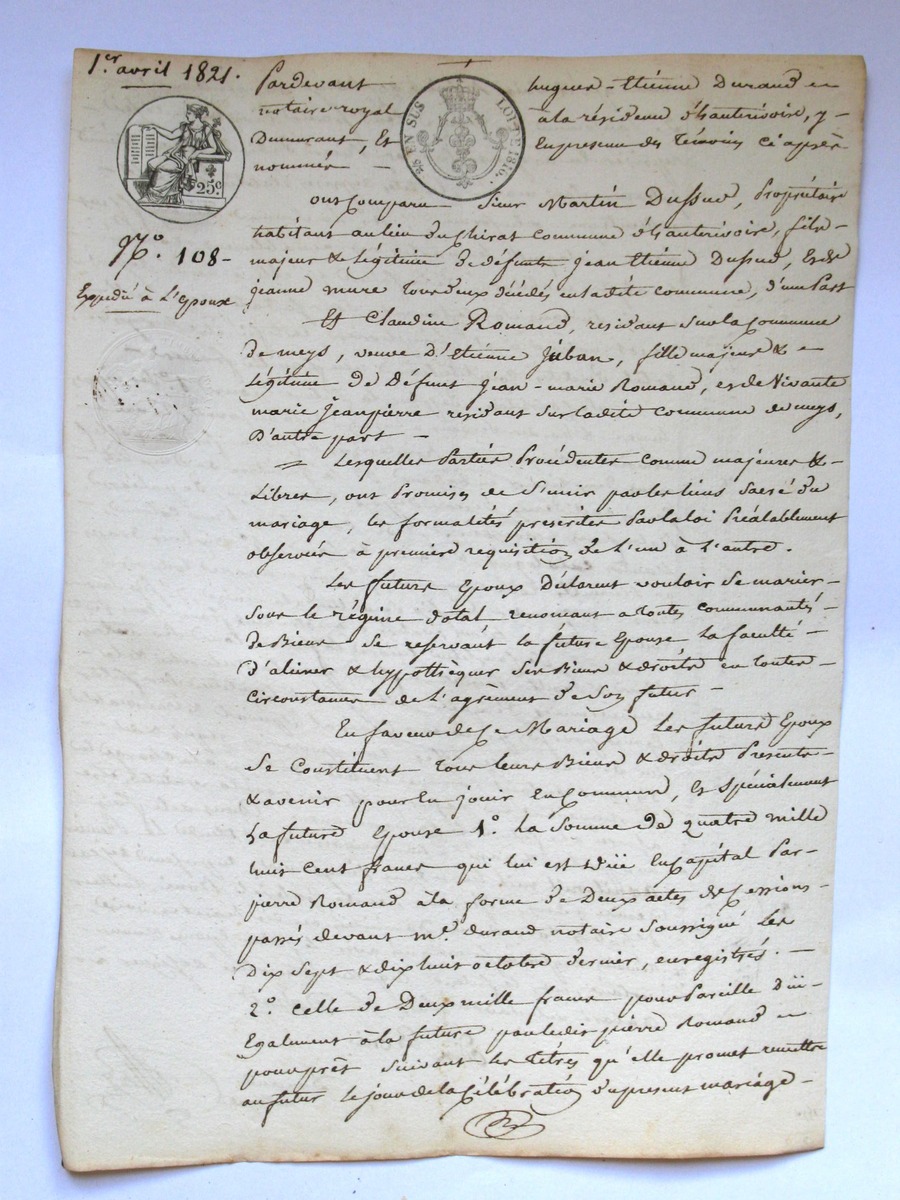 1.er avril 1821.
Pardevant hugues-Etienne Durand
notaire royal à la résidence d'hauterivoire, y
Demeurant, Et En presence des Témoins ci après
nommés
EN SUS
LOI DE 1816.
25 c
N.o 108
Expedié à L'Epoux
ont Comparu Sieur Martin Dussud, Propriétaire
habitant au lieu du Chirat Commune d'hauterivoire, fils
majeur & Légitime de défunts Jean Etienne Dussud, et de
jeanne mure tous deux décédés en ladite commune, d'une Part
Et Claudine Romand, résidant sur la Commune
de meys, veuve D'Etienne Juban, fille majeure &
Légitime de Défunt jean-marie Romand, et de Vivante
marie Jeanpierre residant sur ladite Commune de meys,
D'autre part
= Lesquelles Parties Procédentes comme majeures &
Libres, ont Promises de S'unir par les liens sacré du
mariage, les formalités prescrites Par la loi Préalablement
observées à premiere requisition de L'un à L'autre.
Les futurs Epoux Déclarent vouloir se marier
sous le régime dotal renoncant a toutes communautés
de Biens se reservant la future Epouse La faculté
D'aliener & hypothèquer ses Biens & droits en toutes
circonstances de L'agrèment de Son futur
En faveur de Ce Mariage Les futurs Epoux
se Constituent tous leurs Biens & droits Presents
& avenir pour en jouir en Commun, Et Spécialement
La future Epouse 1.o la Somme de quatre mille
huit cent francs qui lui est düe En Capital Par
pierre Romand à la forme de Deux actes de Cessions
passés devant m.e durand notaire soussigné Les
Dix Sept & dix huit octobre dernier, enregistrés.
2.o Celle de Deux mille francs pour Pareille Düe
Egalement à la future par ledit pierre Romand
pour prêt suivant les titres qu'elle promet remettre
au futur le jour de la Célébration du present mariage